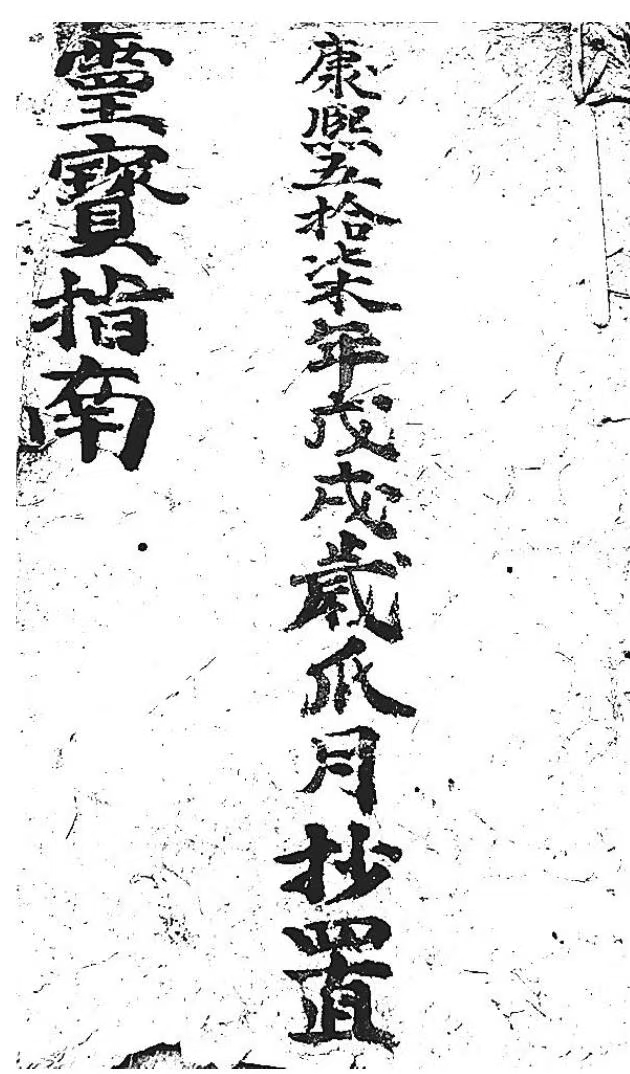 康熙五拾柒年戊戌歲瓜月抄置
靈寶指南